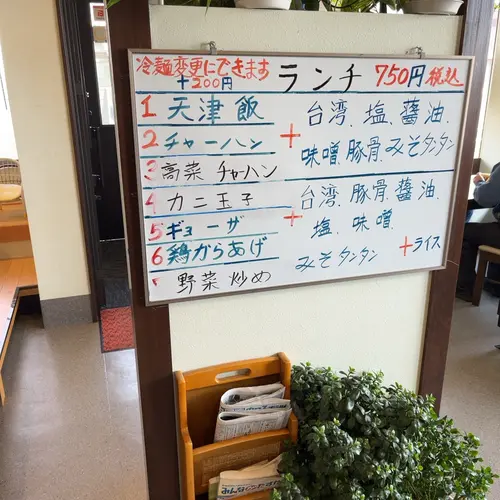 冷麺変更にできます
+200円
ランチ 750円 税込
1 天津飯
2 チャーハン
3 高菜チャーハン
+ 台湾、塩、醤油、
味噌、豚骨、みそタンタン
4 カニ玉子
5 ギョーザ
6 鶏からあげ
野菜炒め
+ 台湾、豚骨、醤油、
塩、味噌、
みそタンタン +ライス